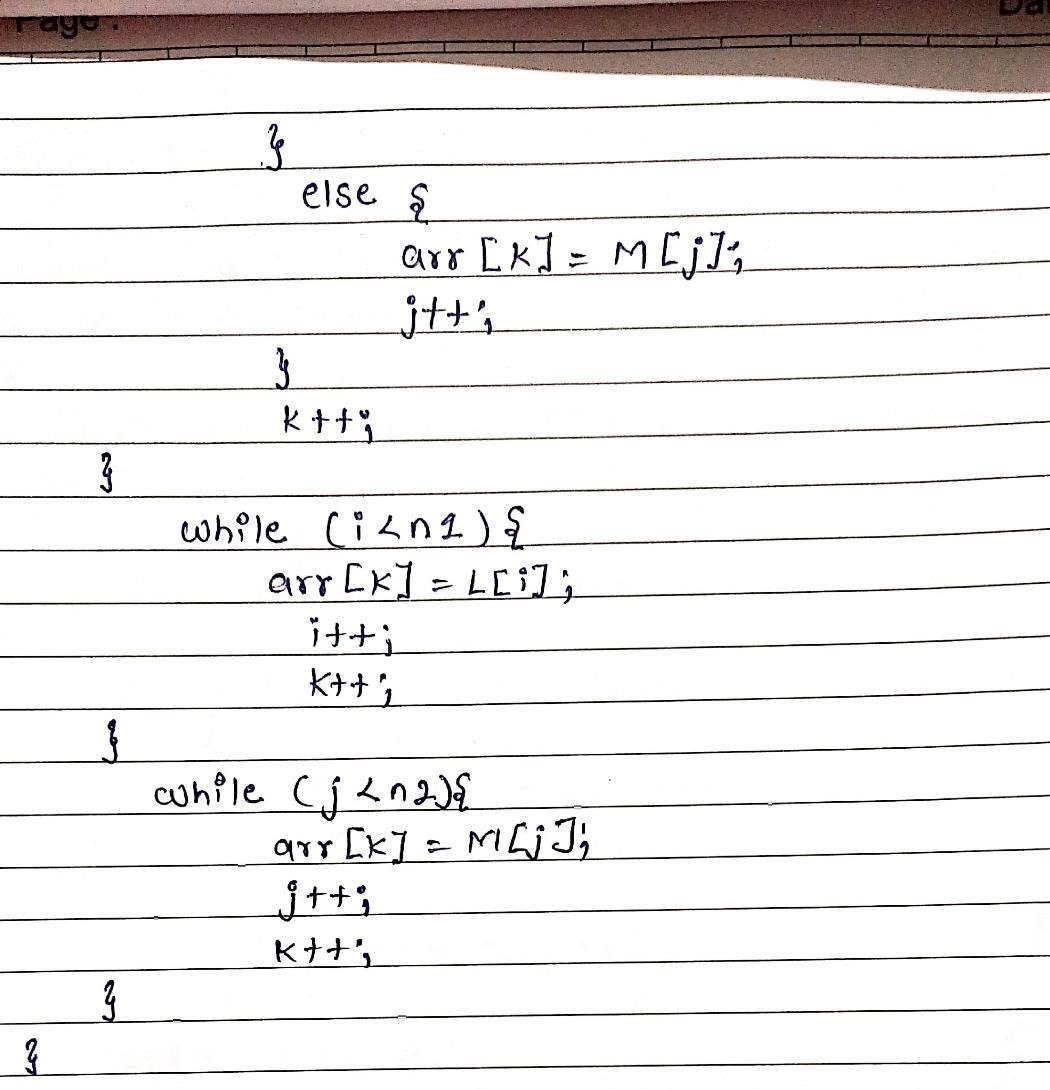 Page :
}
else {
arr [k] = M [j];
j++;
}
k++;
}
while (i<n1) {
arr [k] = L[i];
i++;
k++;
}
while (j<n2){
arr [k] = M[j];
j++;
k++;
}
}